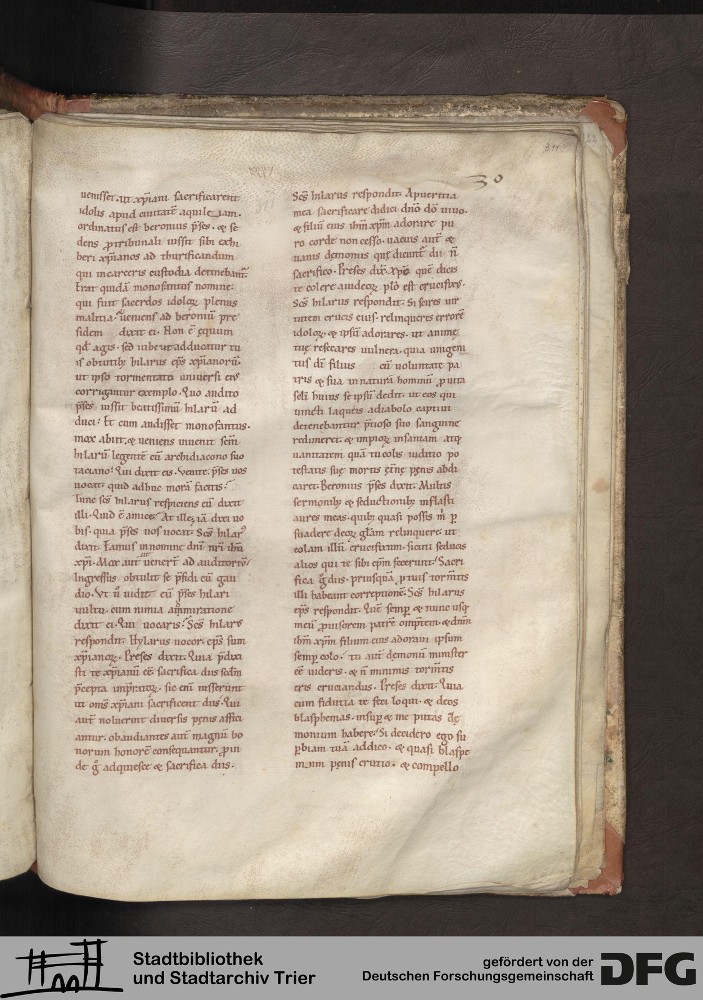 30
uenisset. ut xp̄iani sacrificarent
idolis apud ciuitatē aquileiam.
ordinatus est beronius p̄ses. & se
dens p̄ tribunali iussit sibi exhi
beri xp̄ianos ad thurificandum
qui in carceris custodia detinebant̄.
Erat quidā monofantus nomine.
qui fuit sacerdos idoloꝝ plenus
malitia. ueniens ad beroniū pre
sidem dixit ei. Non ē ęquum
qd̄ agis. sed iube ut adducatur tu
is obtutibꝫ hilarus ep̄s xp̄ianorū.
ut ipso tormentato uniuersi eiꝰ
corrigantur exemplo. Quo audito
p̄ses iussit beatissimū hilarū ad
duci. Et cum audisset monofantus.
mox abiit. & ueniens inuenit sc̄m
hilarū legentē cū archidiacono suo
taciano. Qui dixit eis. Venite. p̄ses uos
uocat. quid adhuc morā facitis.
Tunc sc̄s hilarus respiciens eū dixit
illi. Quid ē amice. At ille. iā dixi uo
bis. quia p̄ses uos uocat. Sc̄s hilarꝰ
dixit. Eamus in nomine dn̄i nr̄i ih̄u
xp̄i. Mox aut̄ ut uener̄t ad auditoriū
Ingressus. obtulit se p̄sidi cū gau
dio. Vt ū uidit eū p̄ses hilari
uultu. cum nimia ammiratione
dixit ei. Qui uocaris. Sc̄s hilarꝰ
respondit. Hylarus uocor. ep̄s sum
xp̄ianoꝝ. Preses dixit. Quia p̄dixi
sti te xp̄ianū eē. sacrifica diis sedm̄
p̄cepta imp̄atoꝝ. sic eni iusserunt
ut om̄s xp̄iani sacrificent diis. Qui
aut̄ noluerint diuersis pęnis affici
antur. obaudiantes aut̄ magnū bo
norum honorē consequantur. proin
de g̊ adquiesce & sacrifica diis.
Sc̄s hilarus respondit. A pueritia
mea sacrificare didici dn̄o dō uiuo.
& filiū eius ih̄m xp̄m adorare pu
ro corde non cesso. uacuis aut̄ &
uanis demoniis que dicunt̄ dii n̄
sacrifico. Preses dix̄. Xp̄s quē dicis
te colere a iudeoꝝ plo est crucifixꝰ.
Sc̄s hilarus respondit. Si scires uir
tutem crucis eius. relinqueres errorē
idoloꝝ. & ipsū adorares. ut animę
tuę resecares uulnera. quia unigeni
tus dī filius cū uoluntate pa
tris & sua in naturā hominū p̄ uita
sc̄li huius se ipsū dedit. ut eos qui
uincti laqueis a diabolo captiui
detenebantur p̄tioso suo sanguine
redimeret. & impioꝝ insaniam atqꝫ
uanitatem quā tu colis iuditio po
testatis suę mortis ęternę pęnis abdi
caret. Beronius p̄ses dixit. Multis
sermonibꝫ & seductionibꝫ inflasti
aures meas. quibꝫ quasi possis m̄ p̄
suadere deoꝝ glām relinquere. ut
colam illū crucifixum. sicuti seducis
alios qui te sibi ep̄m fecerunt. Sacri
fica g̊ diis. priusquā p̄ tuis torm̄tis
illi habeant correptionē. Sc̄s hilarus
ep̄s respondit. Quē semꝑ & nunc usqꝫ
meū p̄uisorem patrē omp̄tem & dn̄m
ih̄m xp̄m filium eius adoraui ipsum
semꝑ colo. tu aut̄ demonū minister
eē uideris. & n̄ minimis torm̄tis
eris cruciandus. Preses dixit. Quia
cum fiducia te feci loqui. & deos
blasphemas. insup̄ & me putas dę
monium habere. Si decidero ego su
p̄biam tuā addico. & quasi blasphe
mum pęnis erutio. & compello
Stadtbibliothek
und Stadtarchiv Trier
gefördert von der
Deutschen Forschungsgemeinschaft
DFG